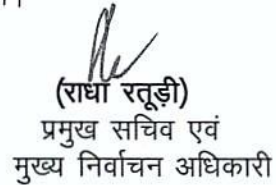 (राधा रतूड़ी)
प्रमुख सचिव एवं
मुख्य निर्वाचन अधिकारी